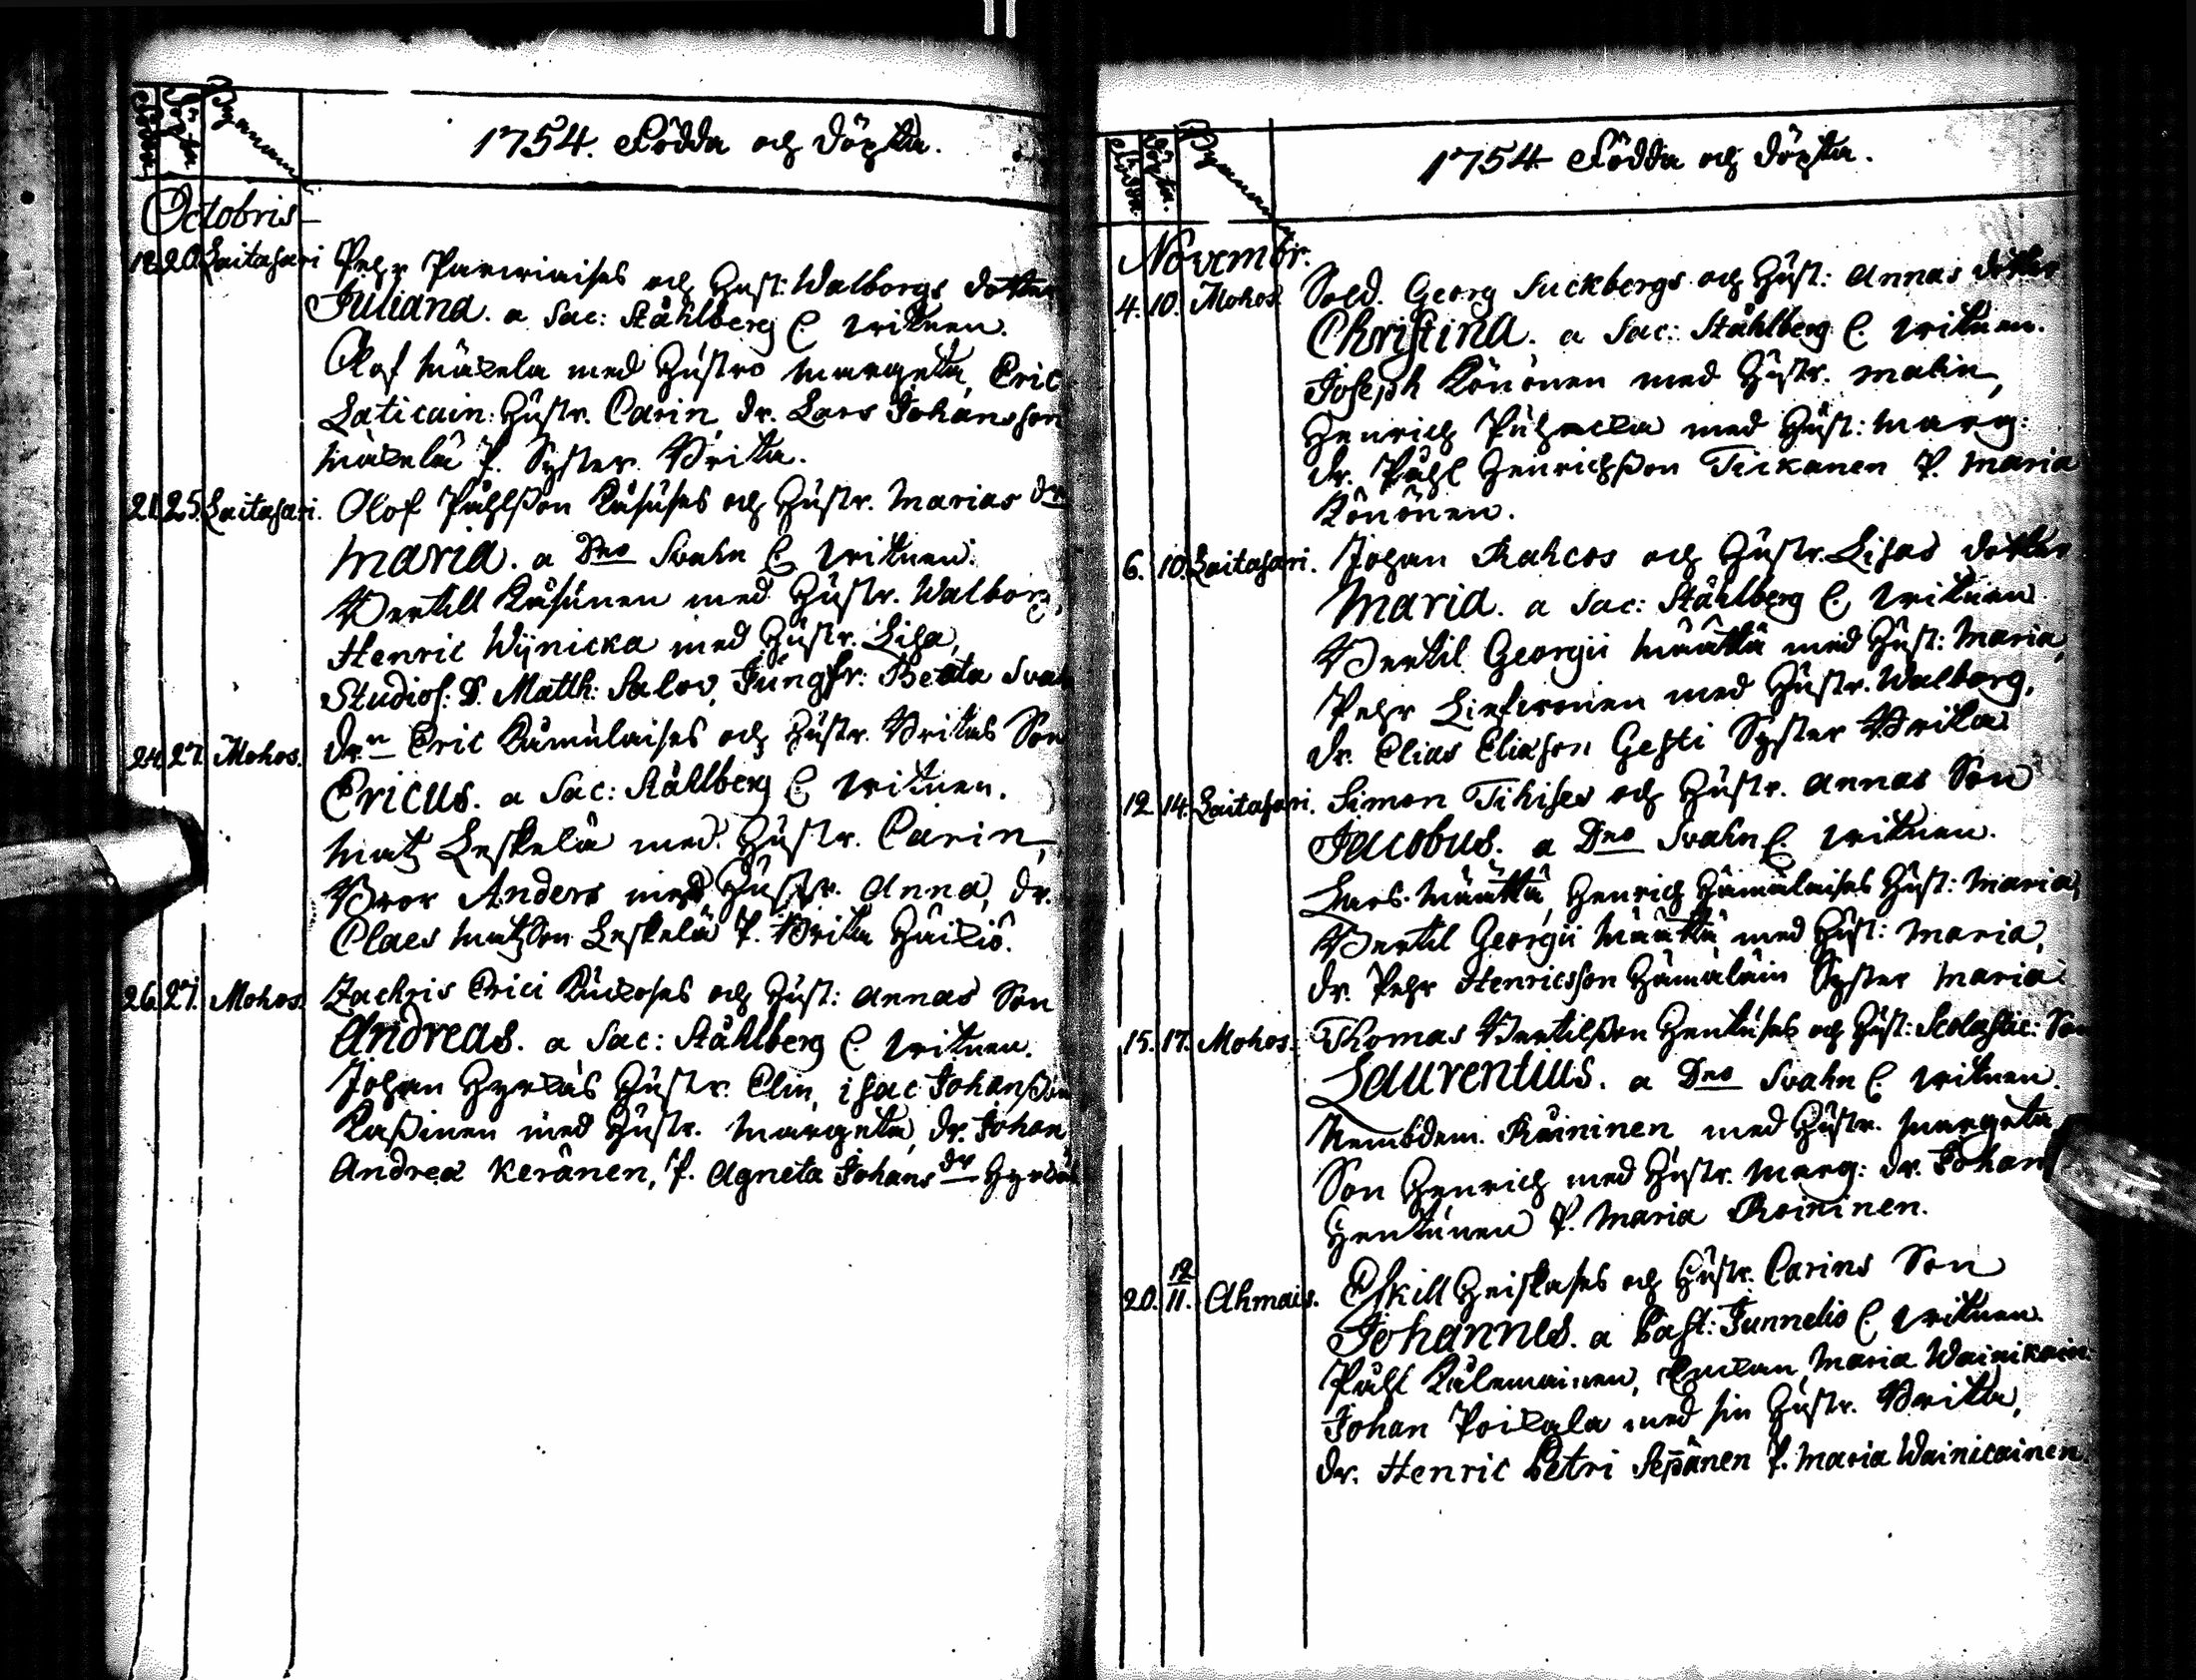 Födda
Döpta
Bynamn
1754. Födda och döpta.
Octobris
18. 20. Laitasari Pehr Parviaises och Hust: Walborgs dotter
Juliana. a Sac: Ståhlberg C. vitnen.
Olof Määtelä med Hustro Margeta, Eric
Laticain: Hustr. Carin, dr. Lars Johansson
P. Syster Brita.
21. 25. Laitasari. Olof Påhlsson Käsuses och Hustr. Marias dr
Maria. a Dno Svahn C. vitnen.
Bertill Kåsunen med Hustr. Walborg,
Henric Wijnicka med Hustr. Lisa,
Studios: D. Matth: Salov, Jungfr: Beata Svah
24. 27. Mohos. drn Eric Kämuläises och Hustr. Britas Son
Ericus. a Sac: Ståhlberg C. vitnen.
Matz Leskelä med Hustr. Carin,
Bror Anders med Hustr. Anna, dr.
Claes Matzson Leskelä P. Brita
26. 27. Mohos. Zachris Erici och Hust: Annas Son
Andreas. a Sac: Ståhlberg C. vitnen.
Johan Hyrkäs Hustr. Elin, Isac Johansson
Kassinen med Hustr. Margeta, dr. Johan
Andreæ Keränen, P. Agneta Johans dr Hyrkäs
Födda.
Döpta.
Bynamn
1754 Födda och döpta.
Novembr.
4. 10. Mohos. Sold. Georg Suckbergs och Hust: Annas dotter
Christina. a Sac: Ståhlberg C. vitnen.
Joseph Könönen med Hustr. Malin,
Henrich med Hust: Marg:
dr. Påhl Henrichsson Tickanen P. Maria
Könönen.
6. 10. Laitasari. Johan Rahcos och Hustr. Lisas dotter
Maria. a Sac: Ståhlberg C. vitnen.
Bertil Georgii Määttä med Hust: Maria,
Pehr med Hustr. Walborg,
dr. Elias Eliasson Gesti Syster Brita
12. 14. Laitasari. Simon Tihises och Hustr. Annas Son
Jacobus. a Dno Svahn C. vitnen.
Lars Määttä, Henrich Hämäläises Hust: Maria,
Bertil Georgii Määttä med Hust: Maria,
dr. Pehr Henricsson Hämäläin Syster Maria.
15. 17. Mohos. Thomas Bertilsson Hentuses och Hust: Scolastic: Son
Laurentius. a Dno Svahn C. vitnen.
Nembdem. Roininen med Hustr. Margeta
Son Henrich med Hustr. Marg: dr. Johan
Hentunen P. Maria Roininen.
20. 12/11. Ahmais. Eskill Heiskases och Hustr. Carins Son
Johannes. a Past: Junnelio C. vitnen.
Påhl Kålemainen, Enckan Maria Wainikain:
Johan Poikala med sin Hustr. Brita,
dr. Henric Petri Sepänen P. Maria Wainicainen.